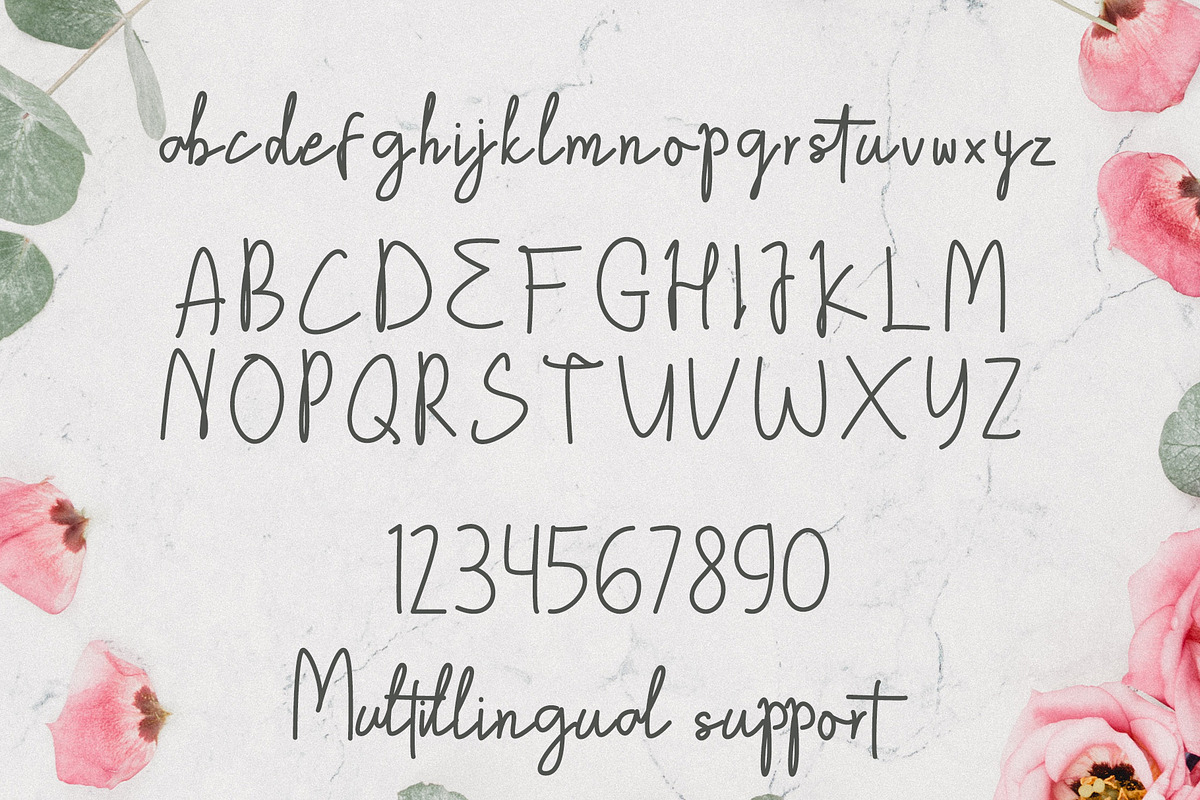 abcdefghijklmnopqrstuvwxyz
ABCDEFGHIJKLM
NOPQRSTUVWXYZ
1234567890
Multillingual support